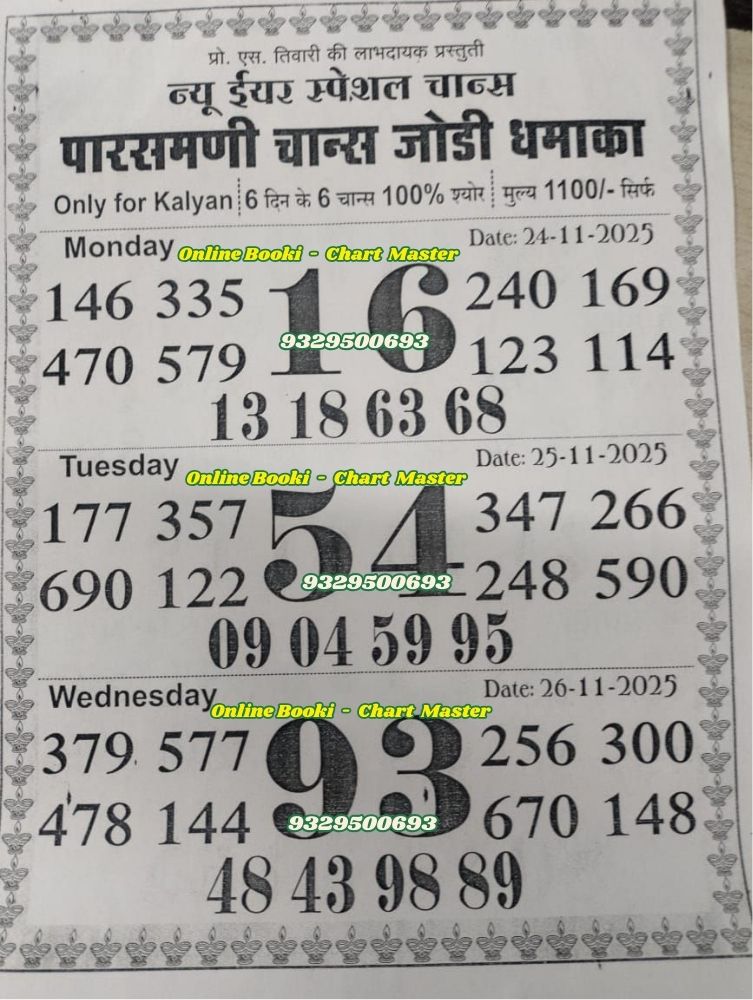 प्रो. एस. तिवारी की लाभदायक प्रस्तुती
न्यू ईयर स्पेशल चान्स
पारसमणी चान्स जोडी धमाका
Only for Kalyan 6 दिन के 6 चान्स 100% श्योर मुल्य 1100/- सिर्फ
Monday Date: 24-11-2025
Online Booki - Chart Master
146 335 16 240 169
9329500693
470 579 123 114
13 18 63 68
Tuesday Date: 25-11-2025
Online Booki - Chart Master
177 357 54 347 266
9329500693
690 122 248 590
09 04 59 95
Wednesday Date: 26-11-2025
Online Booki - Chart Master
379 577 93 256 300
9329500693
478 144 670 148
48 43 98 89